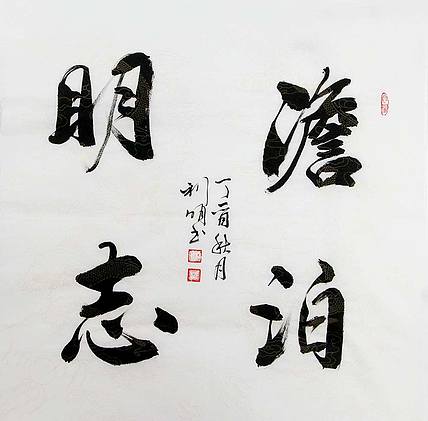 澹泊
明志
丁酉秋月
利明书